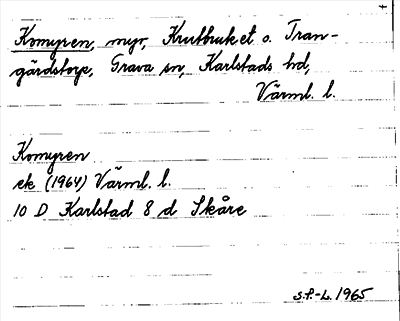 Komyren, myr, Krutbruket o. Tran-
gärdstorp, Grava sn, Karlstads hd,
Värml. l.
Komyren
ek (1964) Värml. l.
10 D Karlstad 8 d Skåre
S.P.-L. 1965